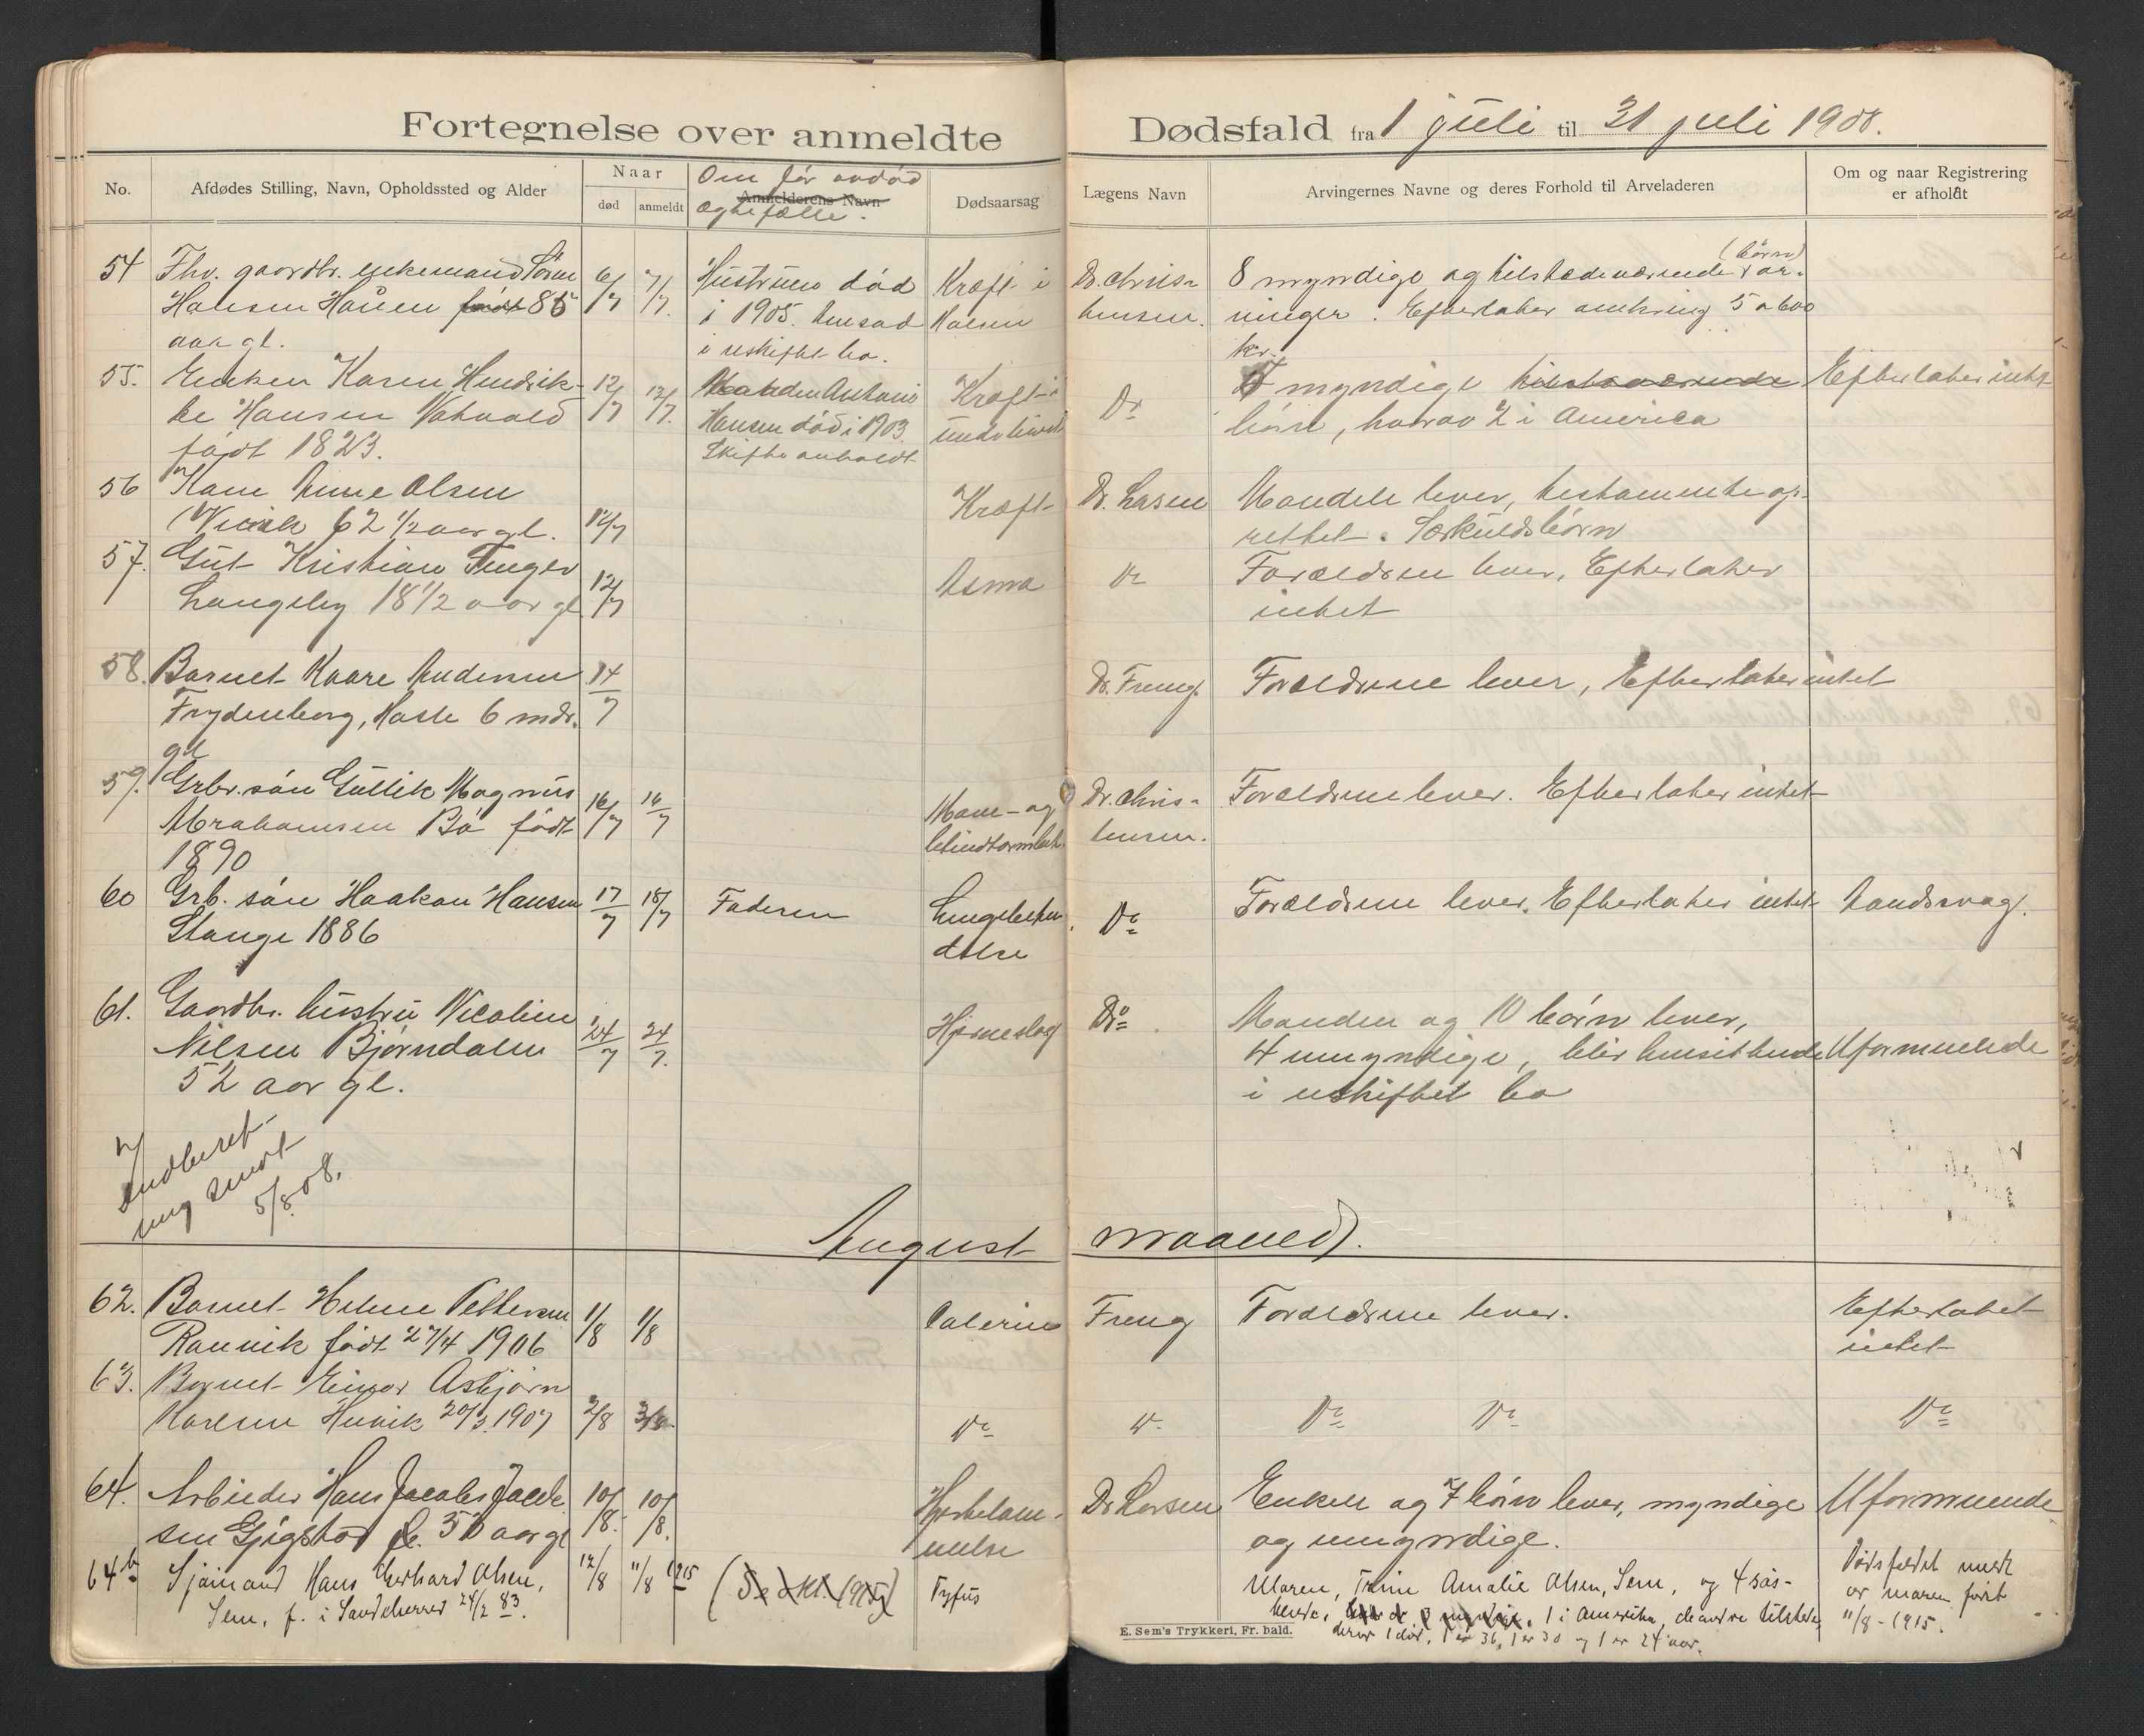 Fortegnelse over anmeldte Dødsfald fra 1 juli til 31 juli 1908.
No.
Afdødes Stilling, Navn, Opholdssted og Alder
Naar
død
anmeldt
Om før avdød
Anmelderens Navn
egtefælle.
Dødsaarsag
Lægens Navn
Arvingernes Navne og deres Forhold til Arveladeren
Om og naar Registrering
er afholdt
54 Fhv. gaardbr. enkemand Søren 6/7 7/7. Hustruen død Kræft i Dr. Chris- 8 myndige og tilstedeværende (børn) ar-
Hansen Hauen født 85 i 1905. hensad Halsen tensen. vinger. Efterlater omkring 5 a 600
aar gl. i uskiftet bo. kr.
55. Enken Karen Hendrik- 12/7 13/7. Manden Anton Kræft i Do myndige tilstedeværende Efterlater intet
ke Hansen Hansen død i 1903. underlivet børn, hvorav 2 i America
født 1823. Skifte avholdt
56 Kone Anne Olsen Kræft Dr. Larsen Manden lever, testamente op-
62 1/2 aar gl. 12/7 rettet. Særkuldsbørn
57. Gut Kristian 12/7 Asma Do Forældrene lever, Efterlater
Langeby 18 1/2 aar gl intet
58. Barnet Kaare Andersen 14/7 Dr. Freng. Forældrene lever, Efterlater intet
Frydenborg, 6 mdr.
gl
59. Grbr. søn Gullik Magnus 16/7 16/7 Mave- og Dr. Chris- Forældrene lever. Efterlater intet
Abrahamsen Bø født tensen.
1890
60 Grb. søn Haakon Hansen 17/7 18/7 Faderen Lungebeten Do Forældrene lever. Efterlater intet Aandssvag.
Stange 1886 delse
61. Gaardbr. hustru Nicoline 24/7 24/7. Hjerneslag Do Manden og 10 børn lever,
Nilsen Bjørndalen 4 umyndige, blir hensittende Uformuende
52 aar gl. i uskiftet bo
Indberet-
ning sendt
5/8 08.
August maaned.
62. Barnet Helene Pettersen 1/8 1/8 Colerine Freng Forældrene lever. Efterlatet
Ranvik født 27/4 1906 intet
63. Barnet Einar Asbjørn
Karlsen Huvik 20/3 1907 2/8 3/8. Do Do Do Do Do
64. Arbeider Hans Jacob Jacob 10/8. 10/8. Hjertelam- Dr Larsen Enken og 7 børn lever, myndige Uformuende
sen Gjøgstad 50 aar gl melse og umyndige.
64b Sjømand Hans Gerhard Olsen, 12/8 11/8 1915 (Se 1915) Tyfus Moren, Trine Amalie Olsen, Sem, og 4 søs- Dødsfaldet meldt
Sem, f. i Sandeherred 24/2 83. kende, 1 i Amerika, de andre tilstede, av moren først
derav 1 død, 1 er 36, 1 er 30 og 1 er 24 aar. 11/8-1915.
E. Sem's Trykkeri, Fr. hald.